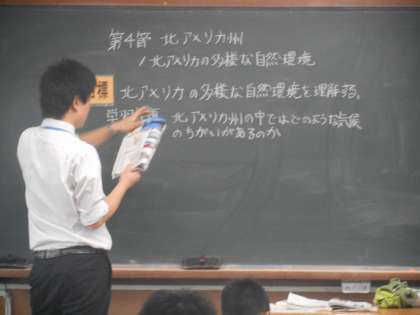 第4節 北アメリカ州
1北アメリカの多様な自然環境
標 北アメリカの多様な自然環境を理解する。
学習課題 北アメリカ州の中ではどのような気候
のちがいがあるのか